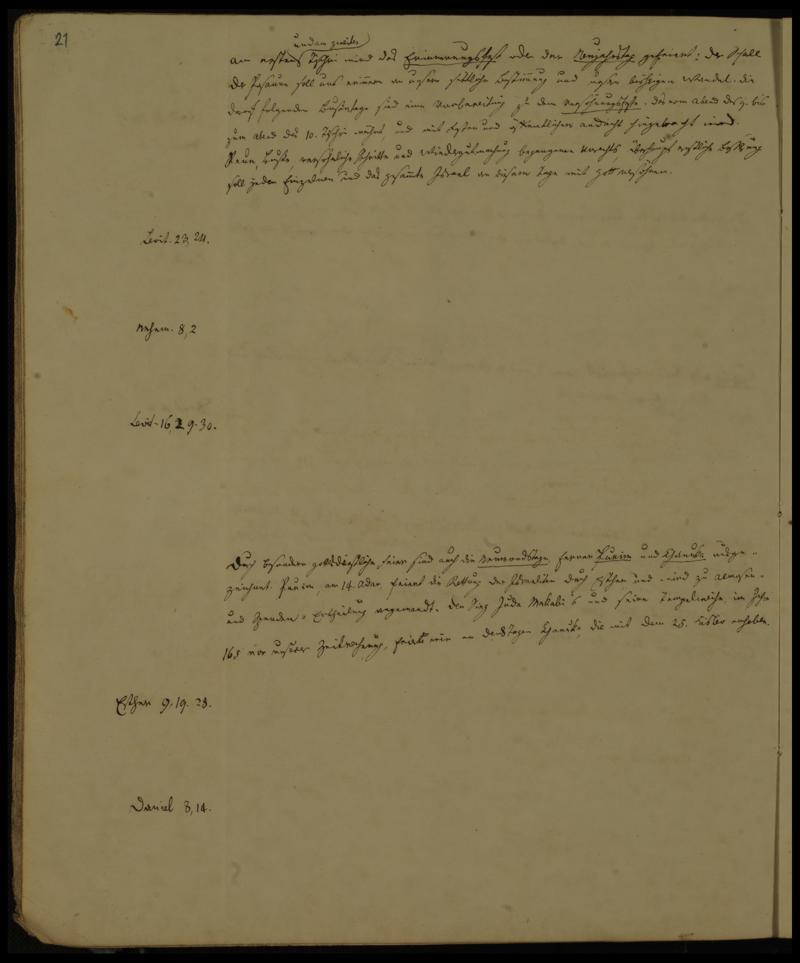 21
und am zweiten
am ersten Tischri wird das Erinnerungsfest oder der Neujahrstag gefeiert; der Schall
der Posaune soll uns erinnern an unsere sittliche Bestimmung und unsern bisherigen Wandel. die
darauf folgenden Bußtage sind eine Vorbereitung zu dem Versöhnungsfeste, das vom Abend des 9. bis
zum Abend des 10. Tischri währt, und mit Fasten und öffentlicher Andacht hingebracht wird.
Reue, Buße, versöhnliche Schritte und Wiedergutmachung begangenen Unrechts, überhaupt ernstliche Besserung
soll jeden Einzelnen und das gesammte Israel an diesem Tage mit Gott versöhnen.
Levit. 23, 24.
Nehem. 8, 2
Levit. 16, 29-30.
Durch besondere gottesdienstliche Feier sind auch die Neumondstage, ferner Purim und Chanuka ausge-
zeichnet. Purim, am 14. Adar, feiert die Rettung der Israeliten durch Esther und wird zu Almosen-
und Spenden-Ertheilung angewandt. Den Sieg Juda Makabi's und seine Tempelweihe, im Jahr
165 vor unserer Zeitrechnung, feiern wir an den 8 Tagen Chanuka, die mit dem 25. Kislev anheben.
Esther 9, 19. 28.
Daniel 8, 14.